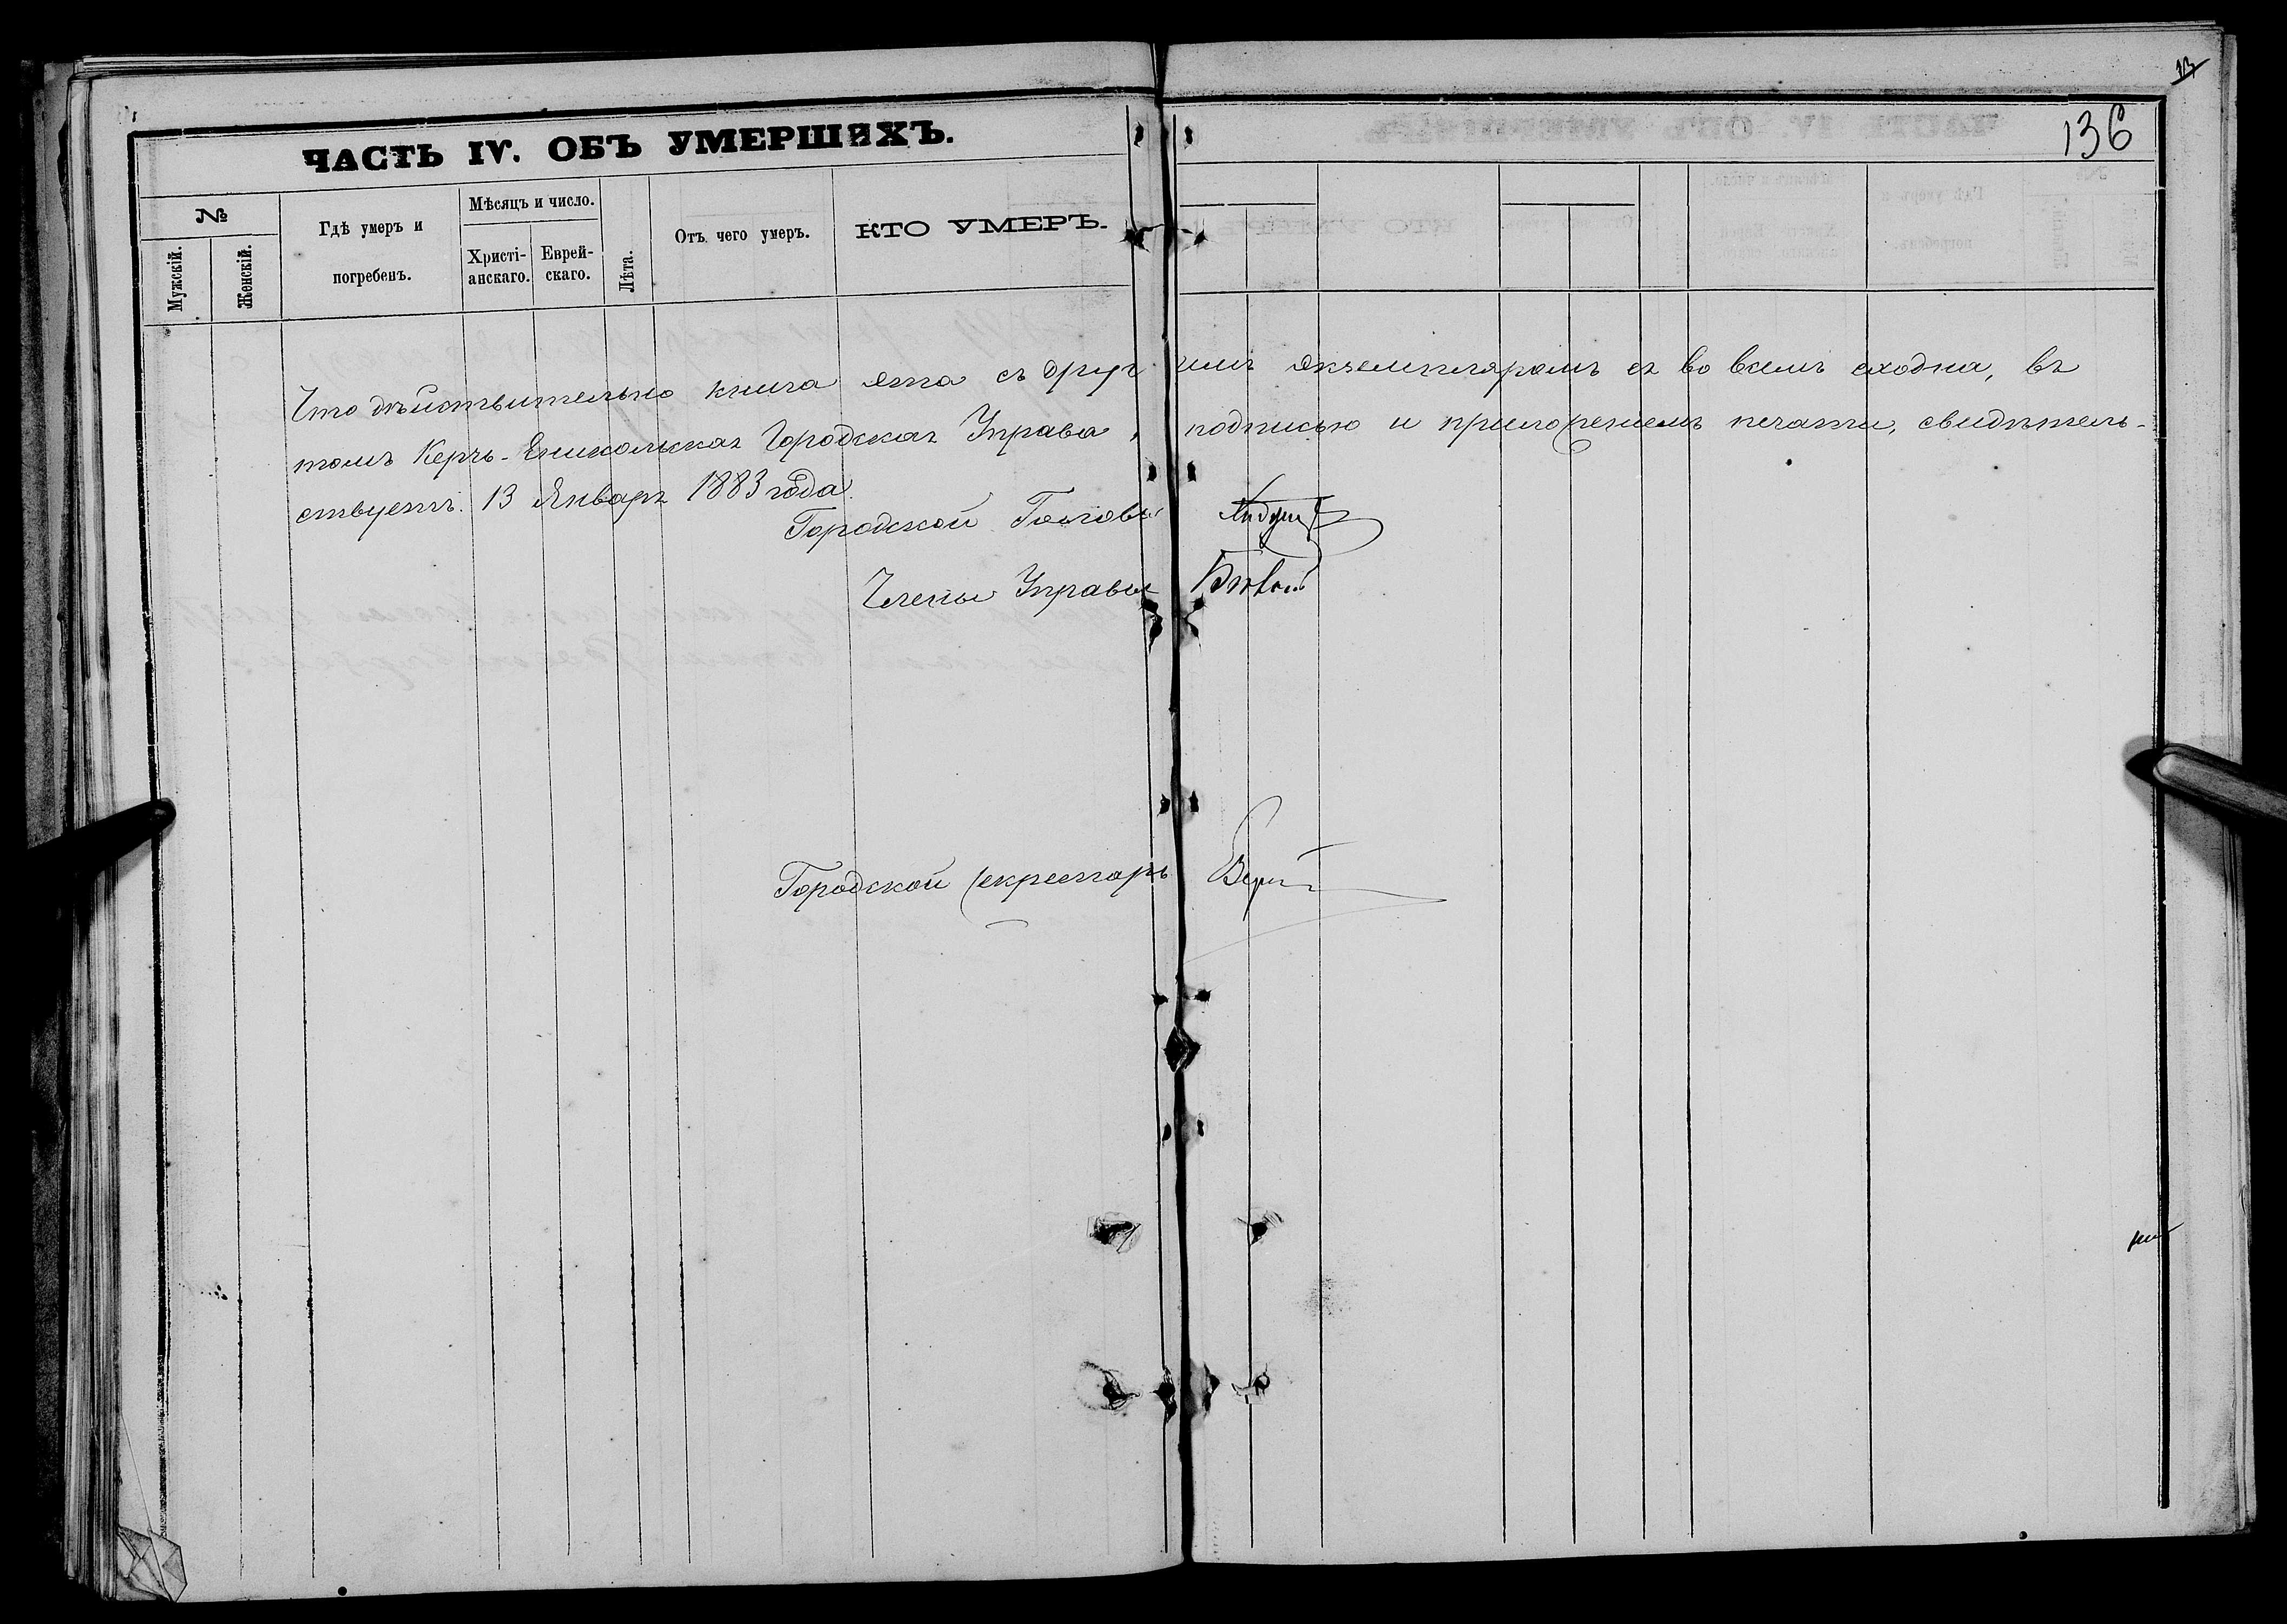 136
ЧАСТЬ IV. ОБЪ УМЕРШИХЪ.
№
Мужскій.
Женскій.
Гдѣ умеръ и
погребенъ.
Мѣсяцъ и число.
Христі-
анскаго.
Еврей-
скаго.
Лѣта.
Отъ чего умеръ.
КТО УМЕРЪ.
Что дѣйствительно книга эта съ другимъ экземпляромъ ея во всемъ сходна, въ
томъ Керчь-Еникольская Городская Управа, подписью и приложеніемъ печати, свидѣтель-
ствуетъ. 13 Января 1883 года.
Городской Голова
Члены Управы
Городской Секретарь